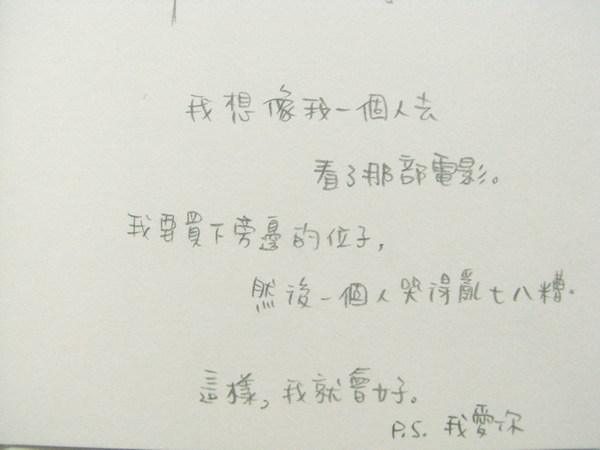 我想像我一個人去
看了那部電影。
我要買下旁邊的位子，
然後一個人哭得亂七八糟.
這樣，我就會好。
P.S. 我愛你